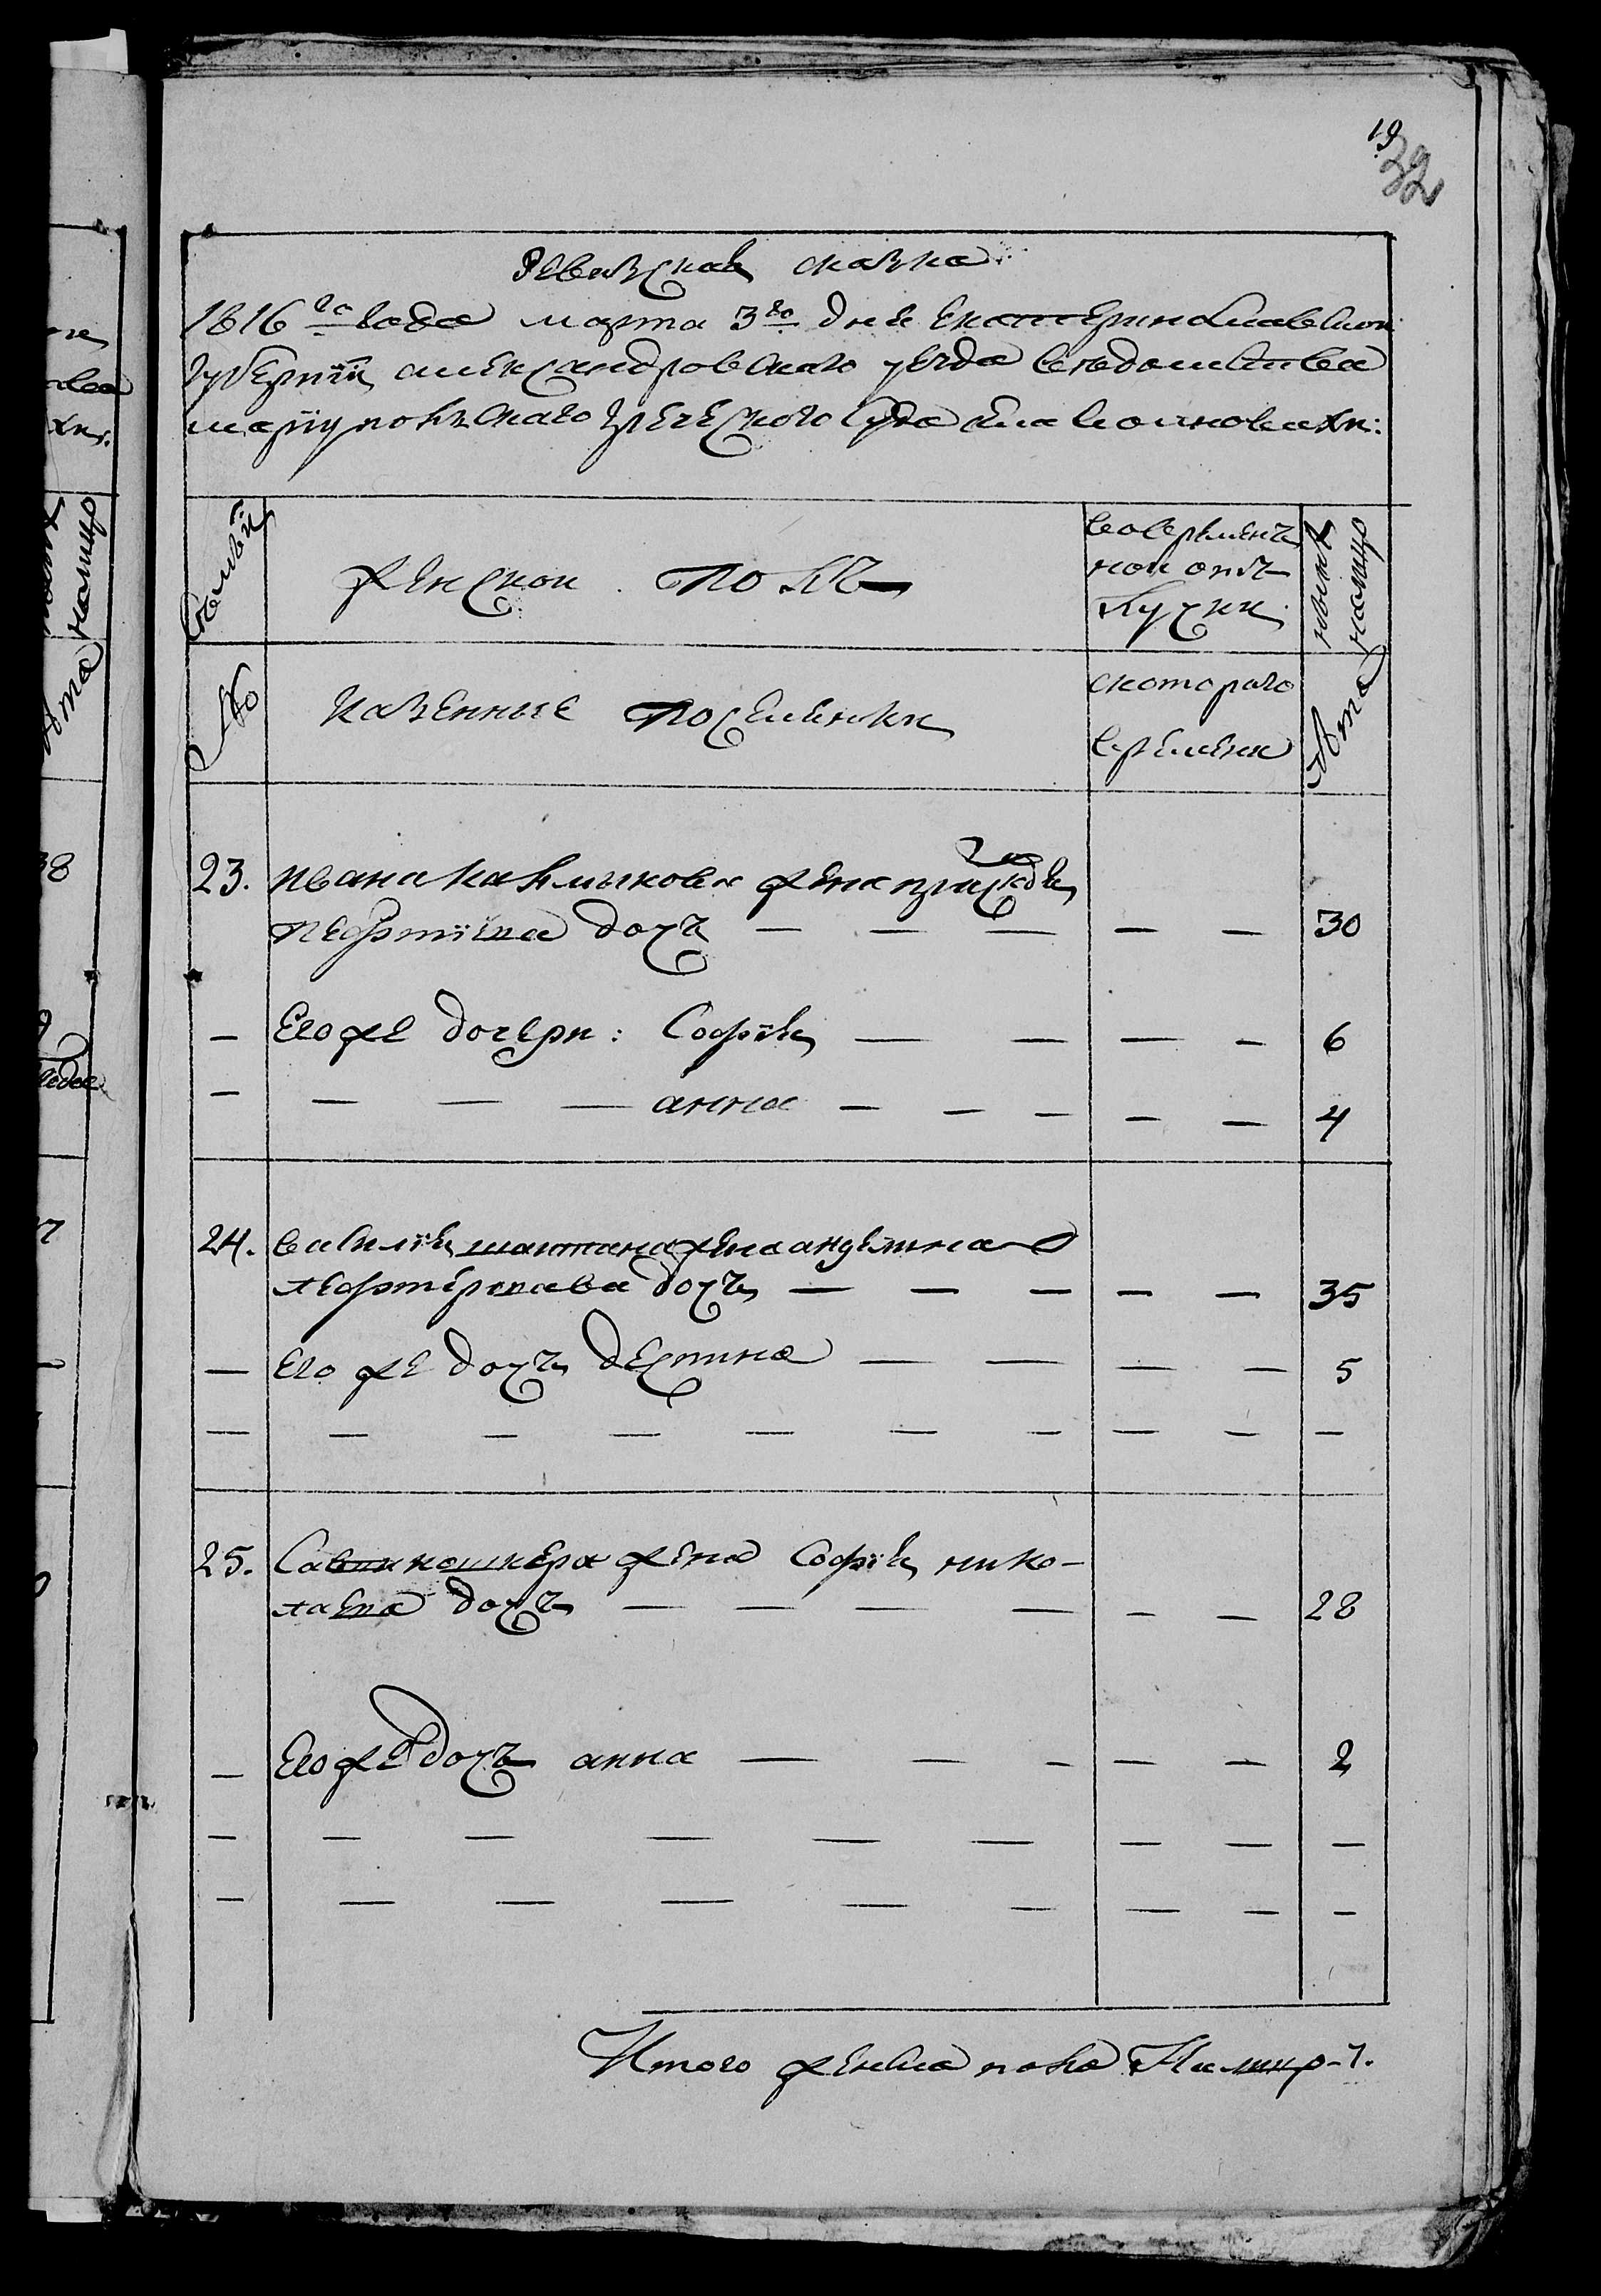 19
32
Ревизская сказка
1816 го года марта 3 го дня Екатеринославской
губернии александровского уезда ведомства
мариупольского греческого суда села волновахи:
Семьи
женской полъ
во временъ
ной отъ
лучки
ныне
налицо
№
казенные поселянки
с которого
времени
лета
23. ивана калмыкова жена 2я
леофтиева дочь — — — — — 30
— Его же дочери: София — — — — 6
— — — — анна — — — — — 4
24. василия шаитана жена анделина
леофтерова дочь — — — — — 35
— Его же дочь деспина — — — — 5
— — — — — — — — — —
25. Савы кошкера жена София нико-
лаева дочь — — — — — — 28
— Его же дочь анна — — — — — 2
— — — — — — — — —
— — — — — — — — —
Итого женска пола налицо - 7.